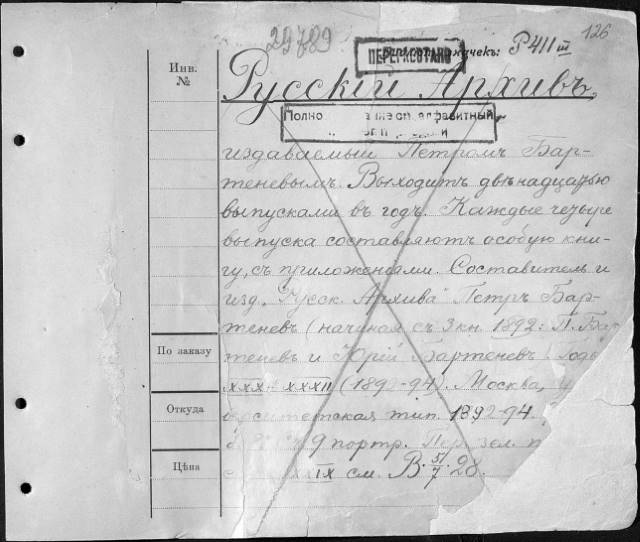 126
29789
ПЕРЕИСТАНО
значек: Р411 III
Инв.
№
Русскій Архивъ,
Полно алфавитный
издаваемый Петромъ Бар-
теневымъ. Выходитъ двѣнадцатью
выпусками въ годъ. Каждые четыре
выпуска составляютъ особую кни-
гу, съ приложеніями. Составитель и
изд. "Русск. Архива" Петръ Бар-
теневъ (начиная съ 3 кн. 1892: П. Бар
По заказу
теневъ и Юрій Бартеневъ). Годы
XXX-XXXII (1892-94). Москва, у
Откуда
верситетская тип. 1892-94.
8° Съ 9 портр. Пер. зел. п
Цѣна
XXIX см. В. 5/7 28.